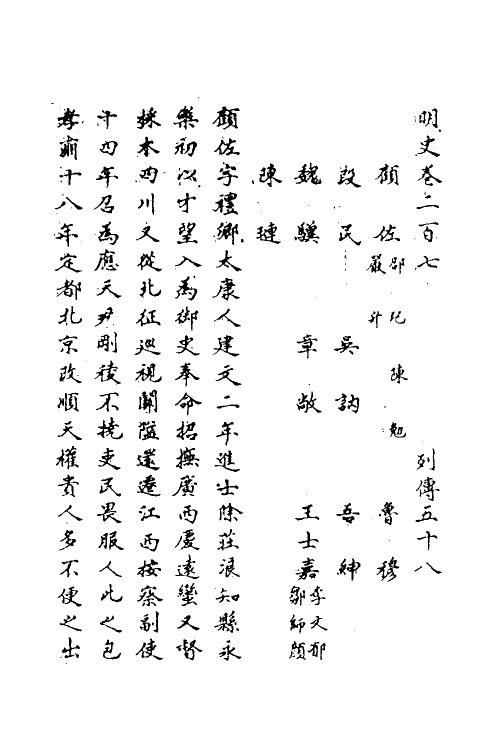 明史卷二百七　列傳五十八
顧佐　邵玘　陳勉　魯穆
嚴升
段民　吳訥　吾紳
魏驥　章敞　王士嘉　李文郁
鄒師顏
陳璉
顧佐字禮卿太康人建文二年進士除莊浪知縣永
樂初以才望入為御史奉命招撫廣西慶遠蠻又督
採木四川又從北征巡視關隘還遷江西按察副使
十四年召為應天尹剛稜不撓吏民畏服人比之包
孝肅十八年定都北京改順天權貴人多不便之出